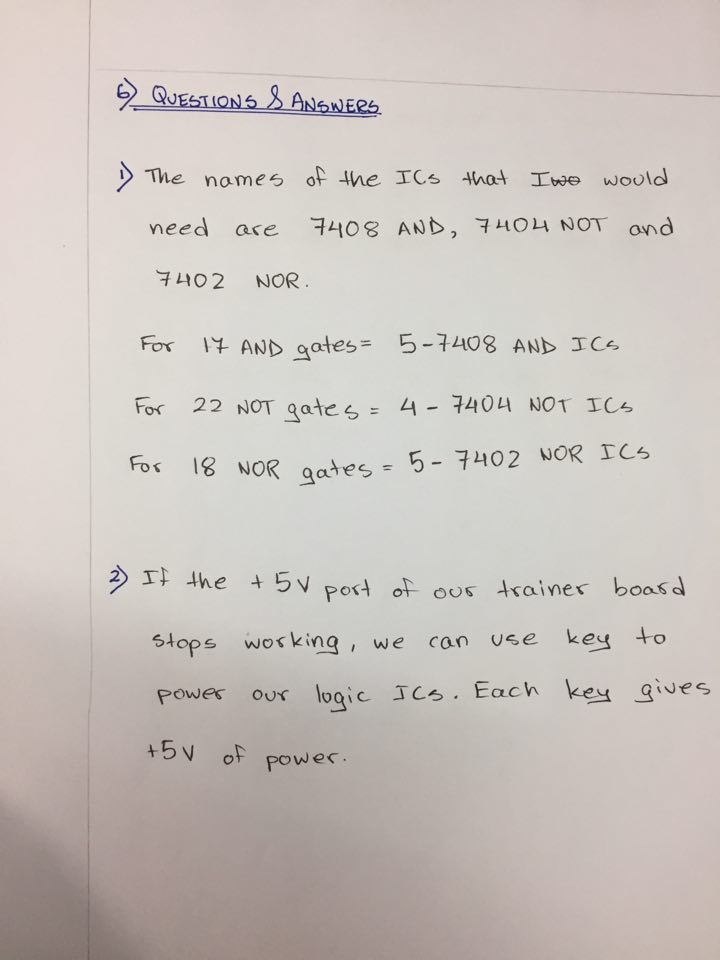 6) QUESTIONS & ANSWERS
1) The names of the ICs that I would
need are 7408 AND, 7404 NOT and
7402 NOR.
For 17 AND gates = 5-7408 AND ICs
For 22 NOT gates = 4 - 7404 NOT ICs
For 18 NOR gates = 5 - 7402 NOR ICs
2) If the +5V port of our trainer board
stops working, we can use key to
power our logic ICs. Each key gives
+5V of power.